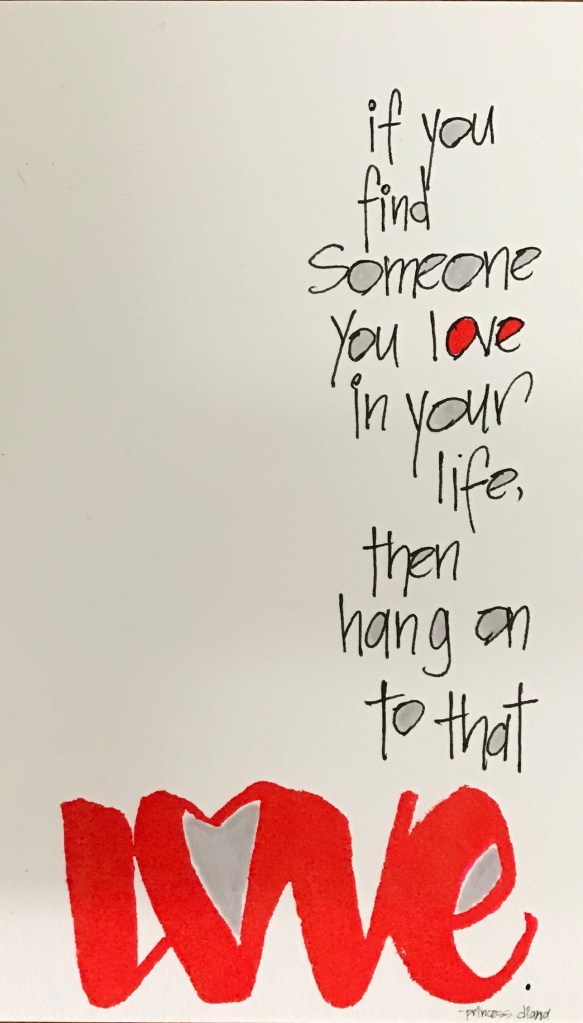 if you
find
Someone
you love
in your
life,
then
hang on
to that
love.
-princess diana